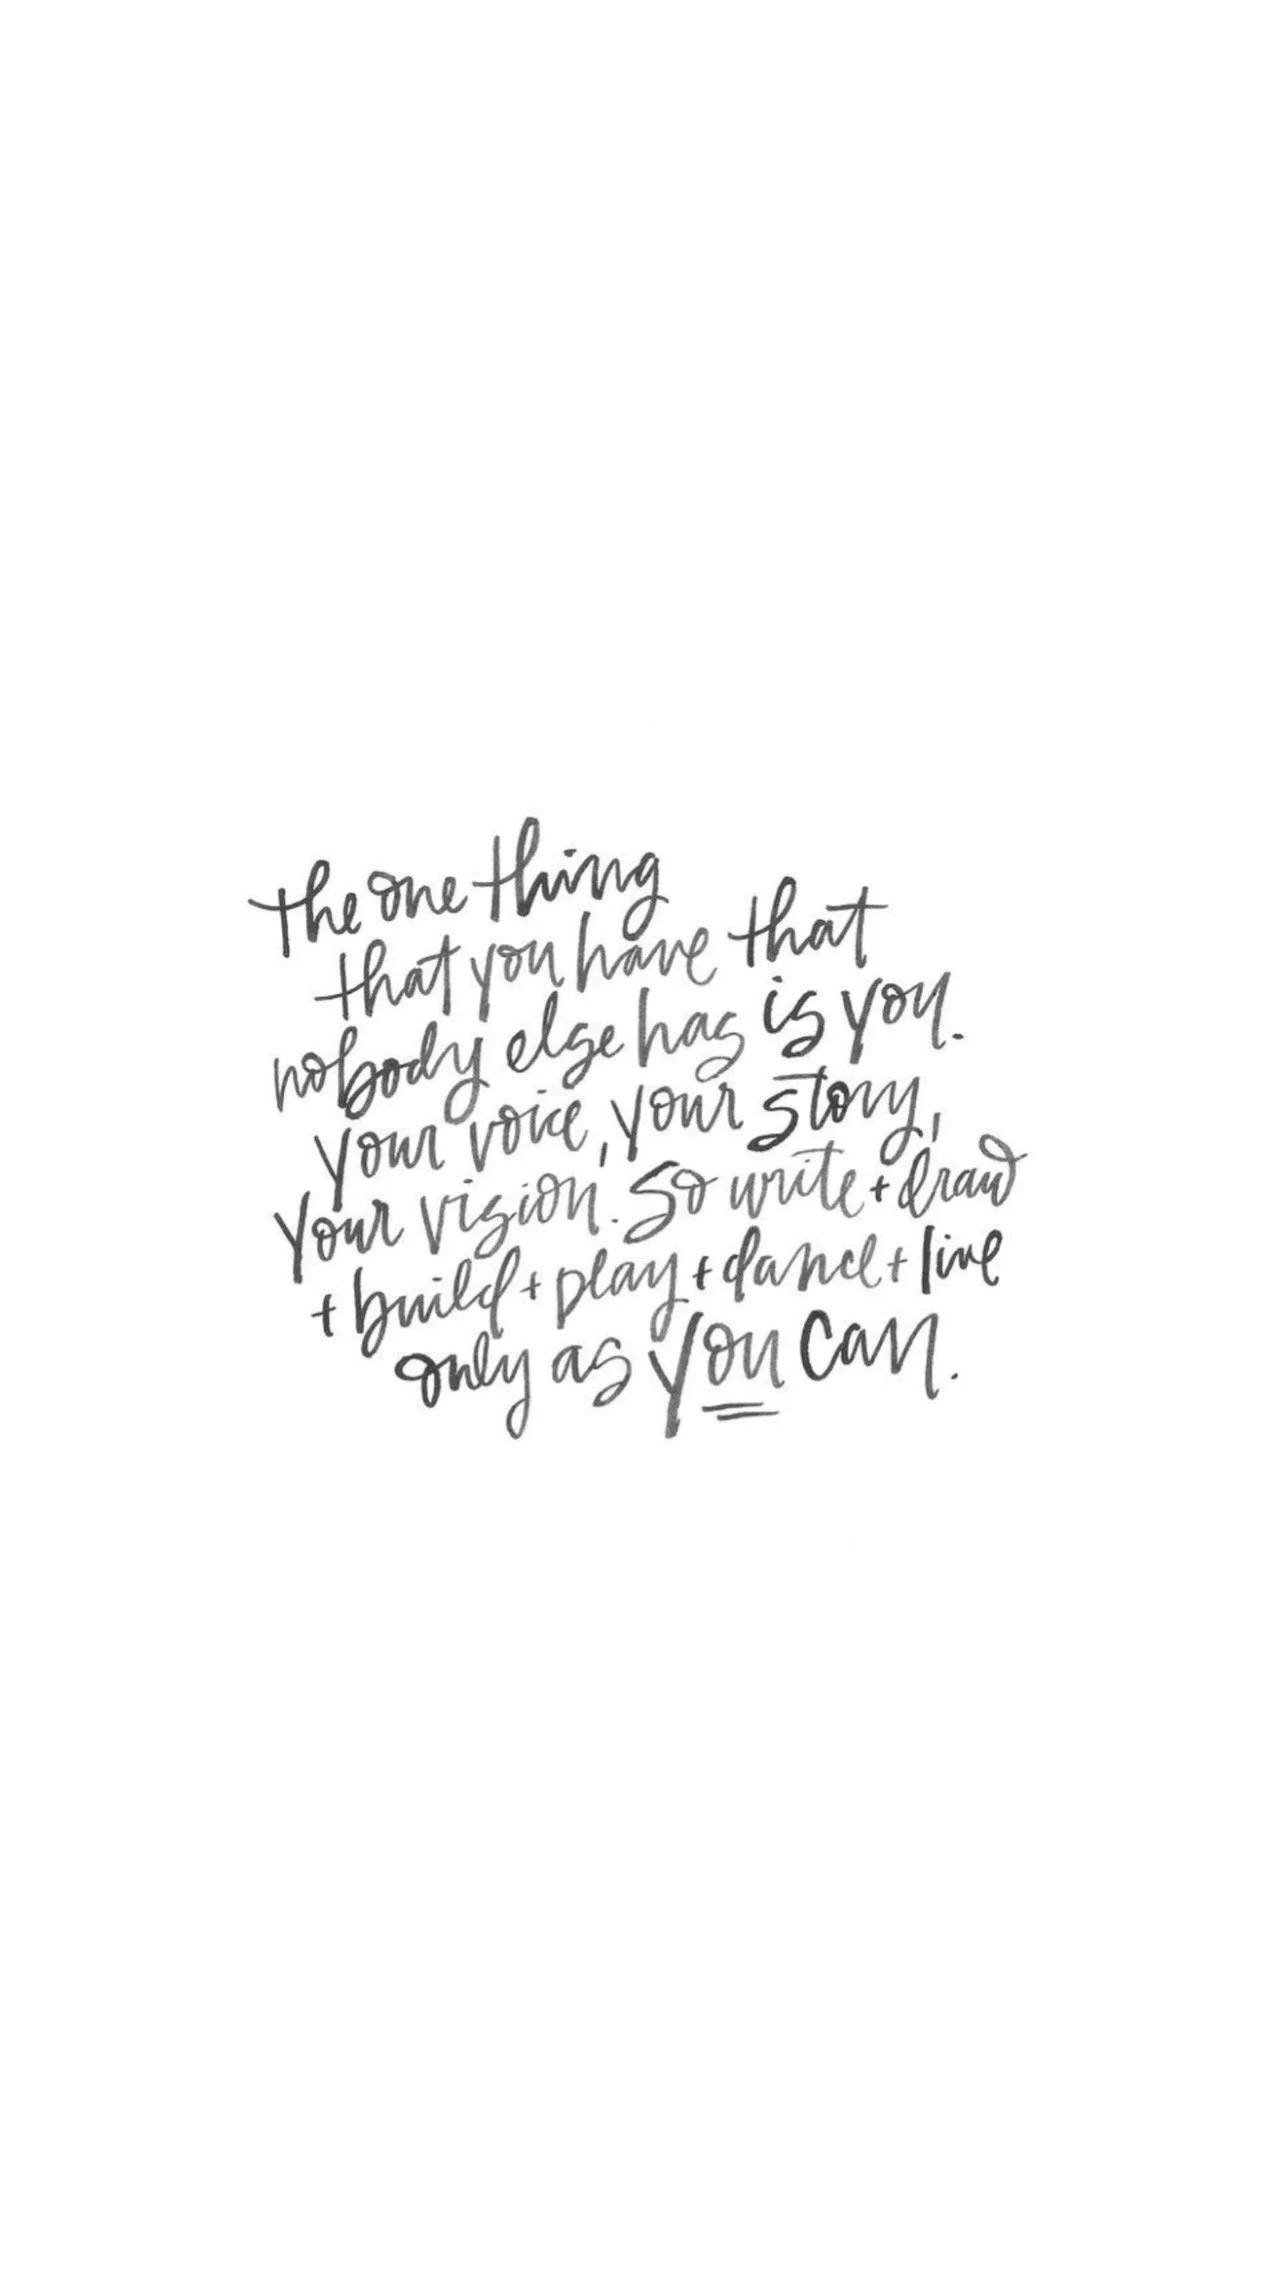 the one thing
that you have that
nobody else has is you.
your voice, your story,
your vision. So write + draw
+ build + play + dance + live
only as you can.